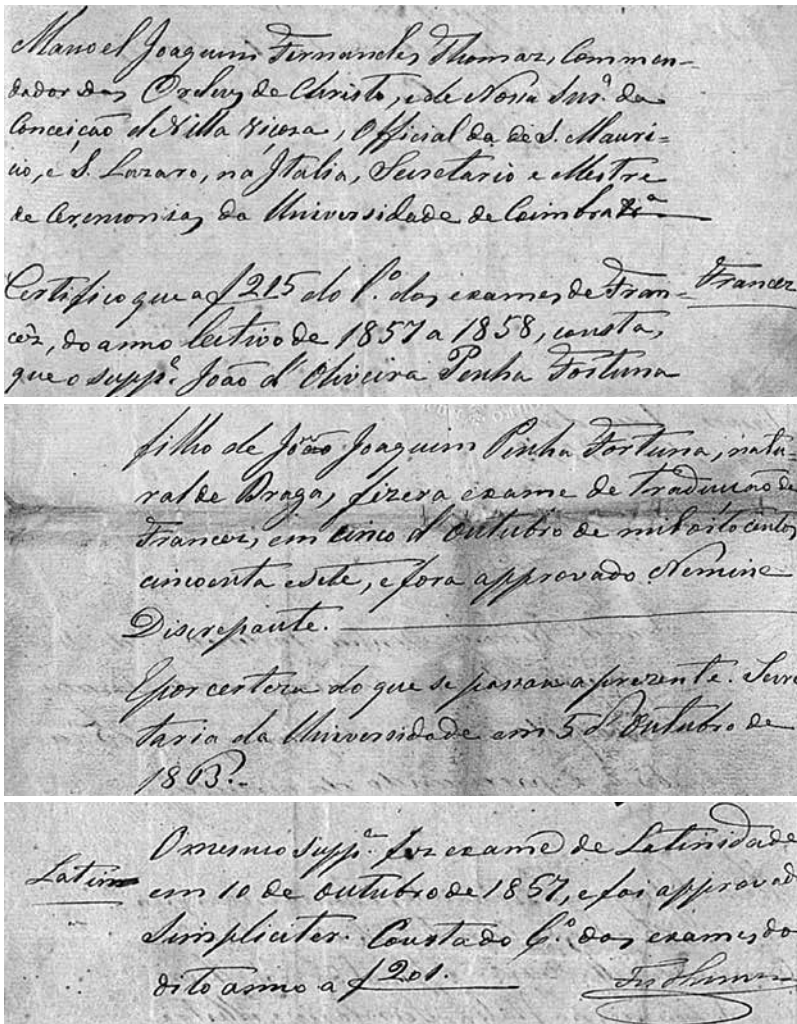 Manoel Joaquim Fernandes Thomaz, Commen-
dador das Ordens de Christo, e de Nossa Snr.ª da
Conceição de Villa Viçosa, Official da de S. Mauri=
cio, e S. Lazaro, na Italia, Secretario e Mestre
de Ceremonias da Universidade de Coimbra
Certifico que a f 215 do l.º dos exames de Fran=
Francez
cêz, do anno lectivo de 1857 a 1858, consta,
que o supp.e João d'Oliveira Penha Fortuna
filho de João Joaquim Penha Fortuna, natu=
ral de Braga, fizera exame de traducção de
Francez, em cinco d'Outubro de mil oito centos
cincoenta e sete, e fora approvado Nemine
Discrepante.
E por certeza do que se passou a prezente. Secre
taria da Universidade em 5 d'Outubro de
1863.
Latim
O mesmo supp.e fez exame de Latinidade
em 10 de outubro de 1857, e foi approvad
Simpliciter. Consta do l.º dos exames do
dito anno a f 201.